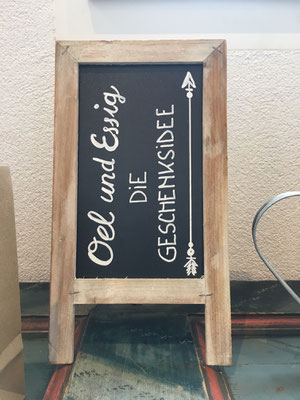 Oel und Essig
DiE
GESCHENKSiDEE